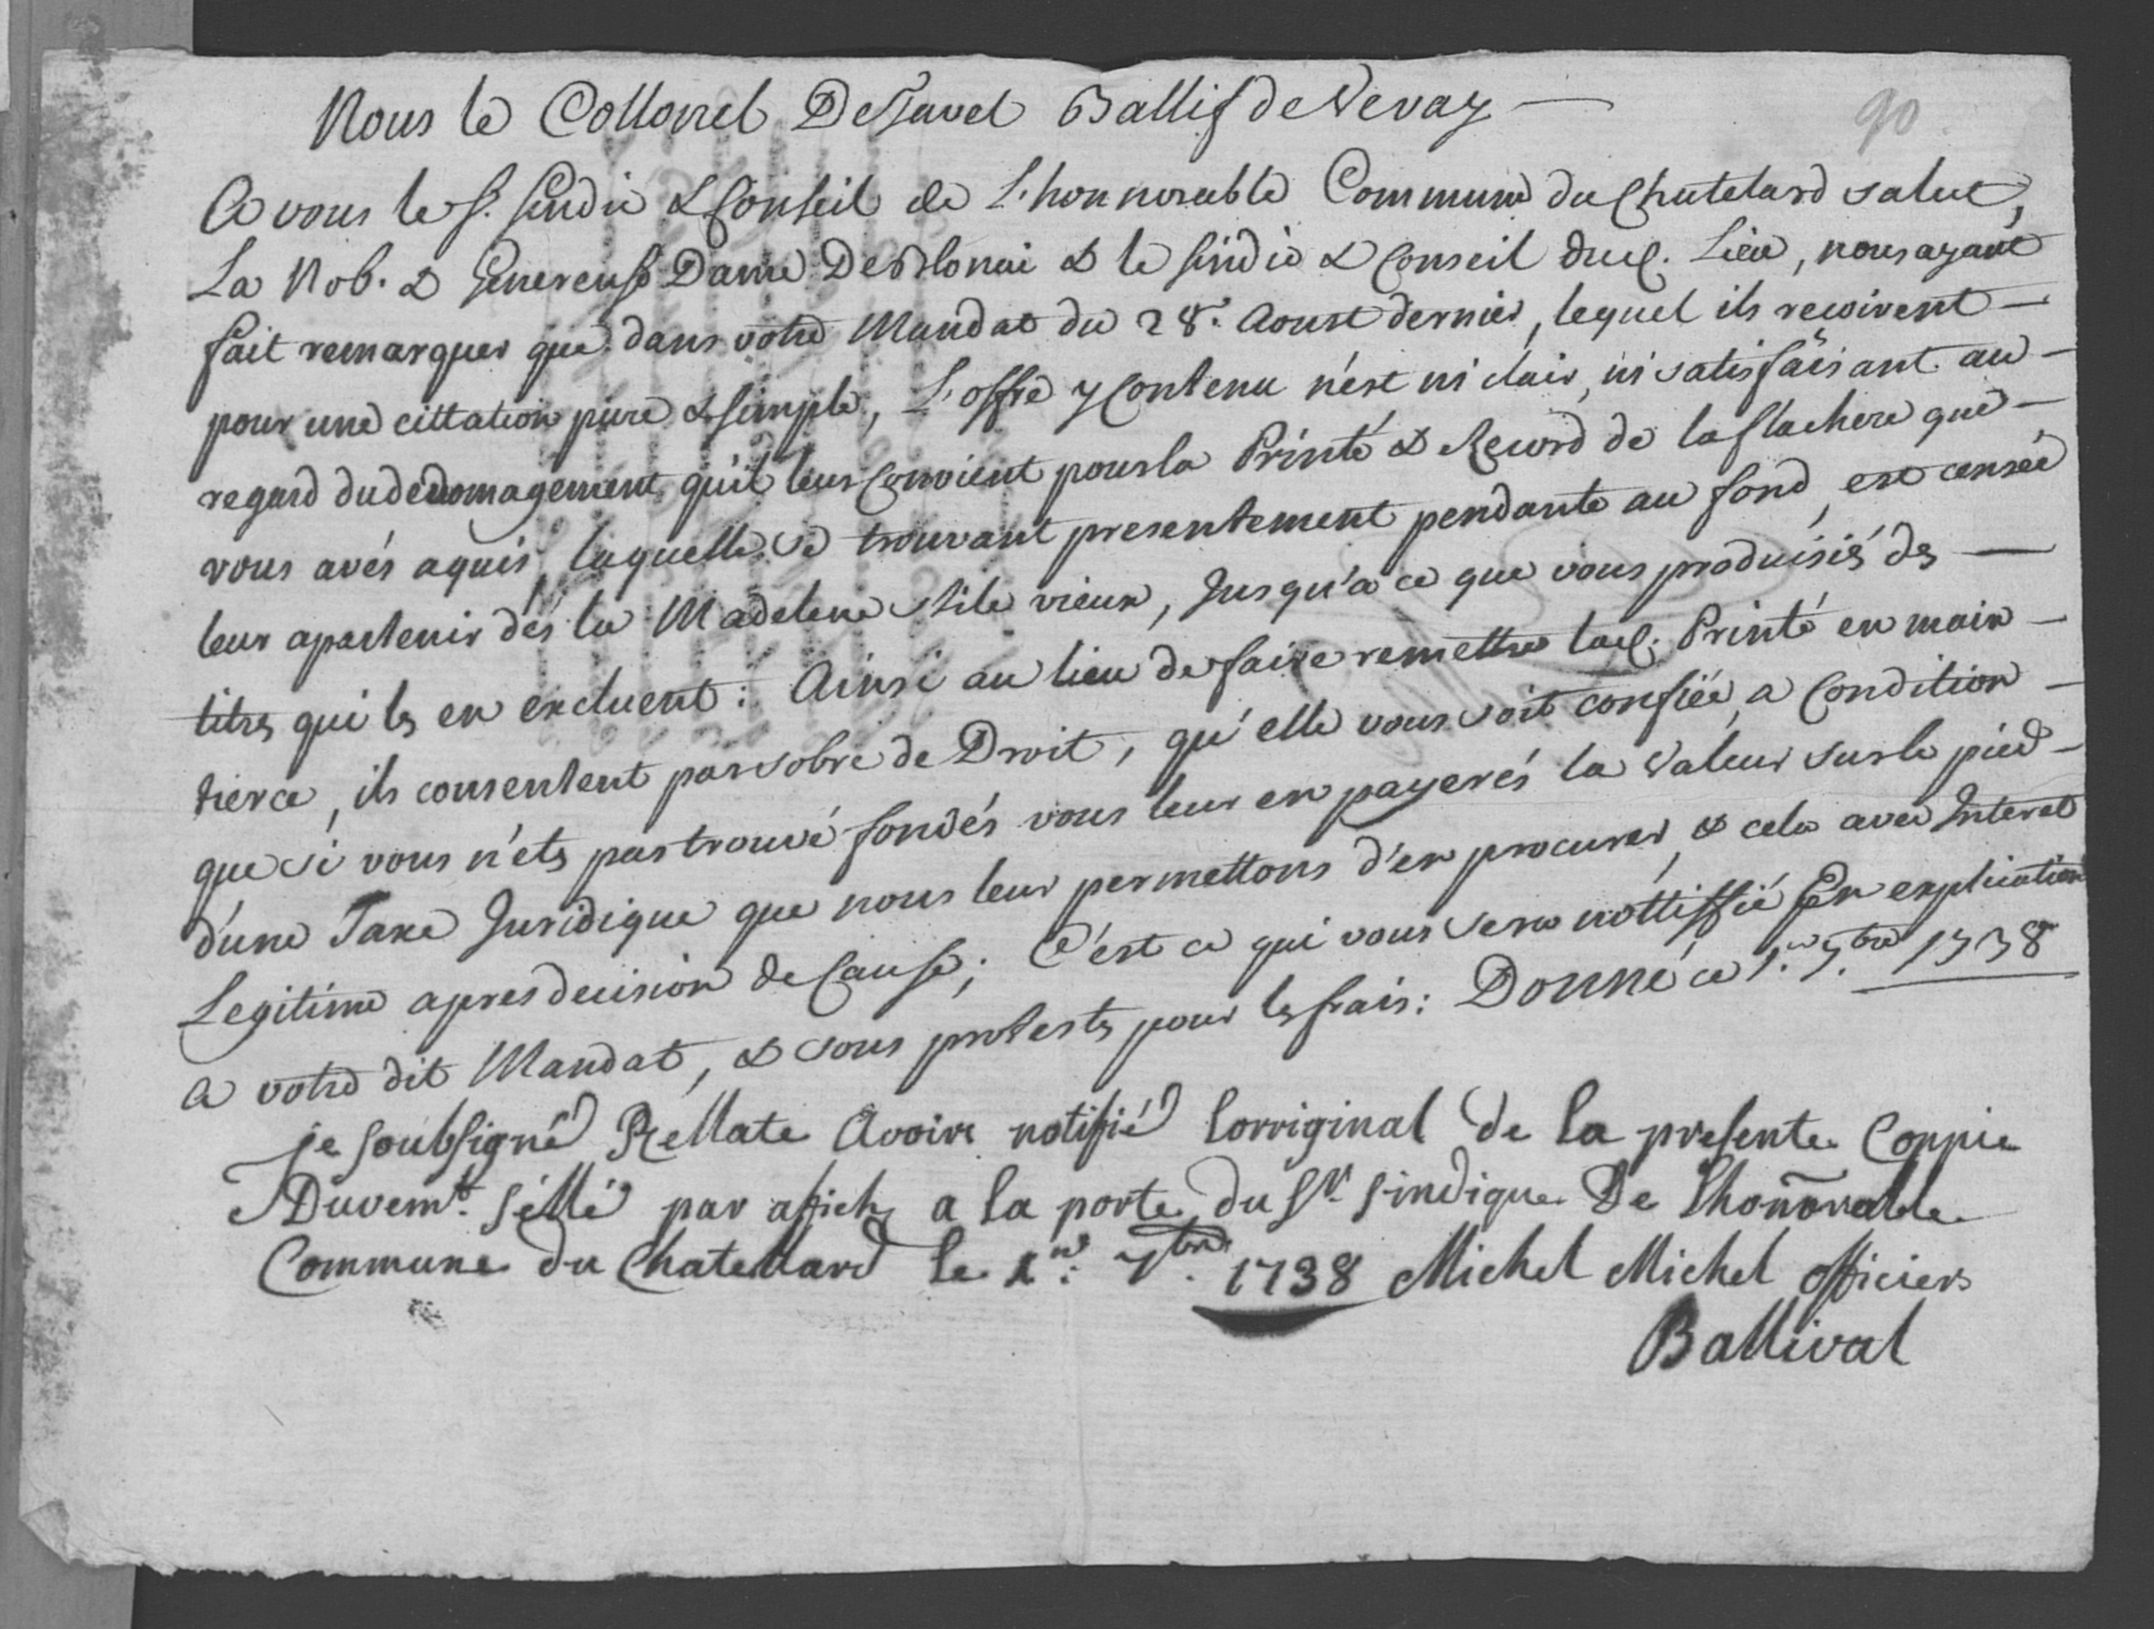 90
Nous le Collonel DeTavel Ballif de Vevay —
A vous le Sr. Sindic & Conseil de L'honnorable Commune du Chatelard salut,
La Nob. & Genereuse Dame DeBlonai & le Sindic & Conseil dud. Lieu, nous ayant
fait remarquer que dans votre Mandat du 28e. Aoust dernier, lequel ils recoivent —
pour une cittation pure & simple, L'offre y contenu n'est ni clair, ni satisfaisant au —
regard du dedomagement qu'il leur convient pour la Printé & Record de la flachere que —
vous avés aquis, laquelle se trouvant presentement pendante au fond, est censée
leur apartenir dés la Madelene stile vieux, Jusqu'a ce que vous produisiés des —
titres qui les en excluent : Ainsi au lieu de faire remettre lad. Printé en main —
tierce, ils consentent par sobre de Droit, qu'elle vous soit confiée, a Condition —
que si vous n'étes pas trouvé fondés vous leur en payerés la valeur sur le pied —
d'une Taxe Juridique que nous leur permettons d'en procurer, & cela avec Interet
Legitime apres decision de Cause ; C'est ce qui vous sera nottiffié En explication
a votre dit Mandat, & sous protestes pour les frais : Donné ce 1.er 7.bre 1738
je soubsigné Rellate Avoire notifié Lorriginal de la presente Coppie
Duvemt. séllé par afiche a la porte du Sr. sindique De Lhonnorable
Commune du Chatellard le 1er. 7bre. 1738 Michel Michel officier
Ballival